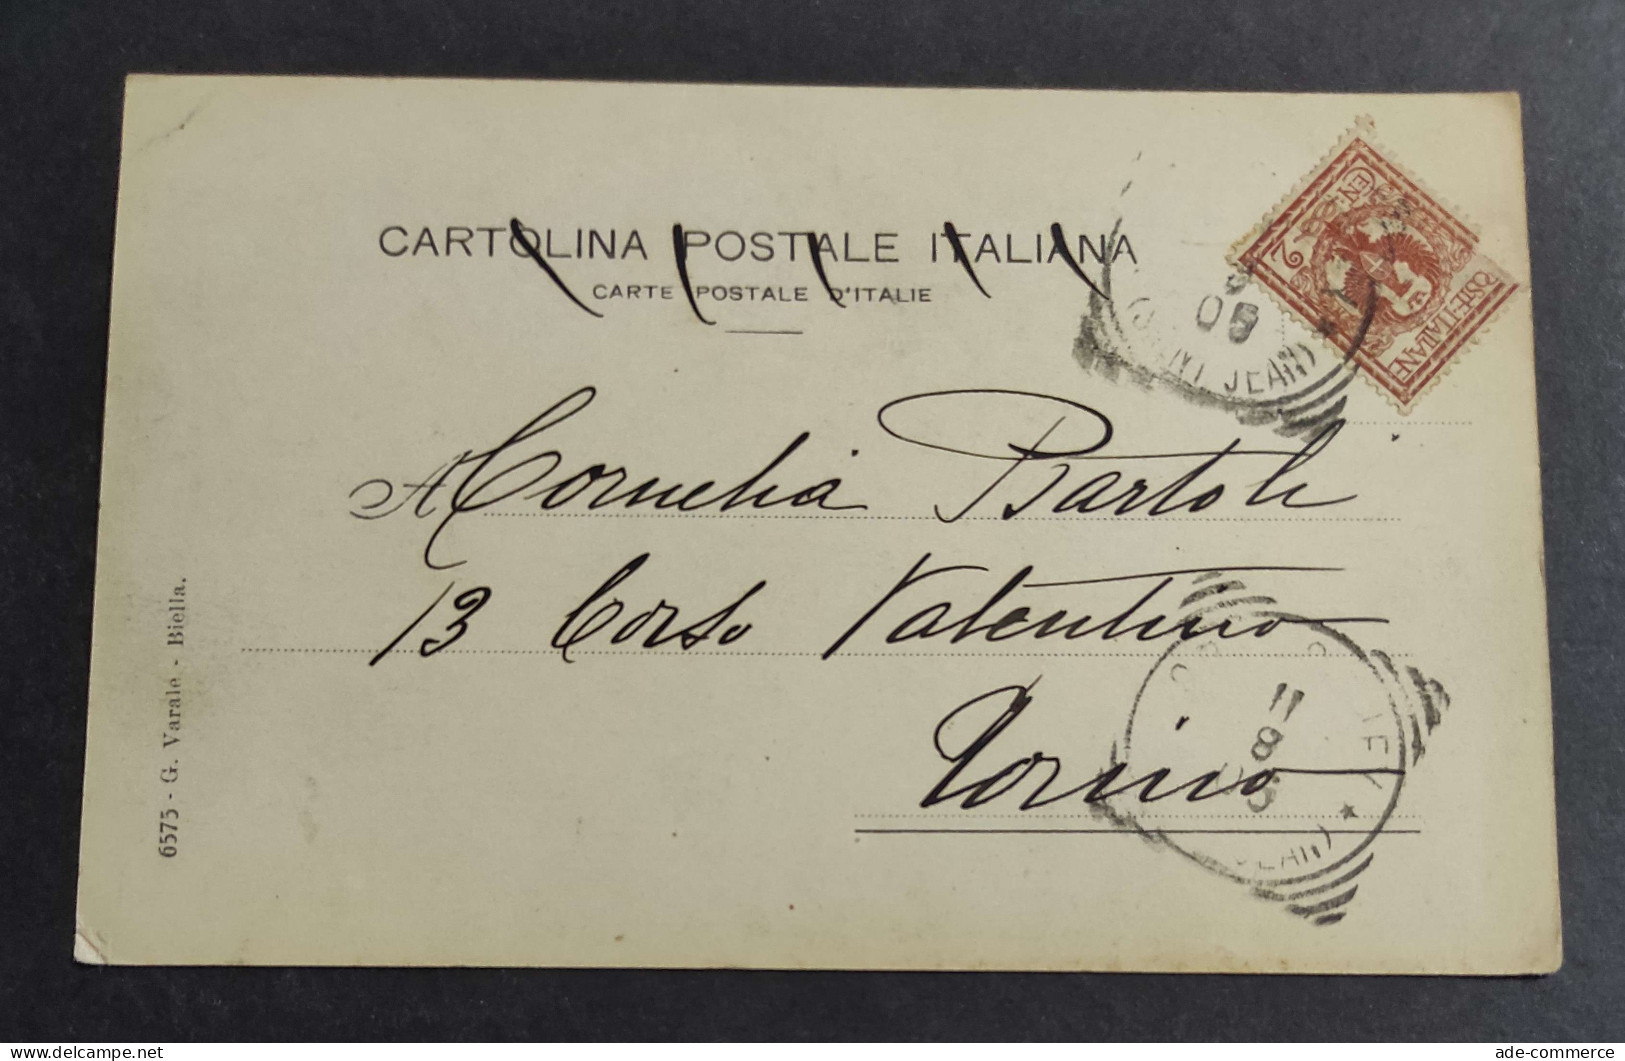 CARTOLINA POSTALE ITALIANA
CARTE POSTALE D'ITALIE
POSTE ITALIANE
CENT. 2
05
JEAN)
A Cornelia Bartoli
13 Corso Valentino
Torino
11
8
05
JEAN)
6575 - G. Varale. - Biella.
ade-commerce